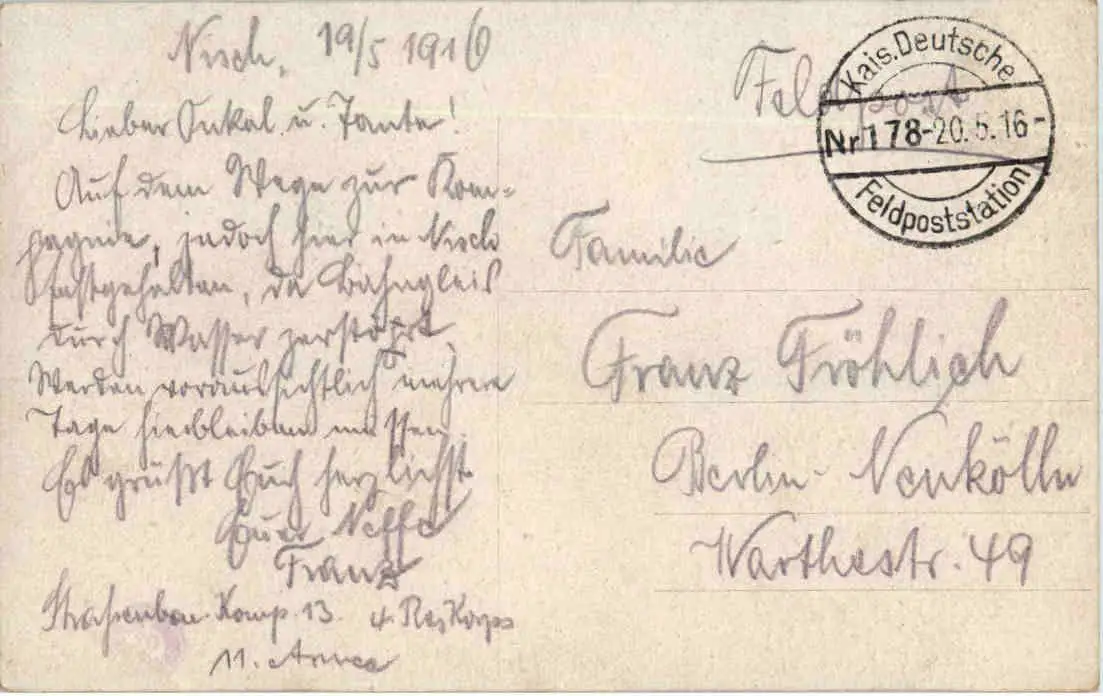 Nisch, 19/5 1916
Lieber Onkel u. Tante!
Auf dem Wege zur Kom-
pagnie, jedoch hier in Nisch
festgehalten, da Bahngleis
durch Wasser zerstört.
Werden voraussichtlich mehrere
Tage hierbleiben müssen.
Es grüßt Euch herzlichst
Euer Neffe
Franz
Straßenbau-Komp. 13. 4. Res Korps
11. Armee
Feldpost
Kais. Deutsche
Nr 178 - 20.5.16 -
Feldpoststation
Familie
Franz Fröhlich
Berlin-Neukölln
Warthestr. 49